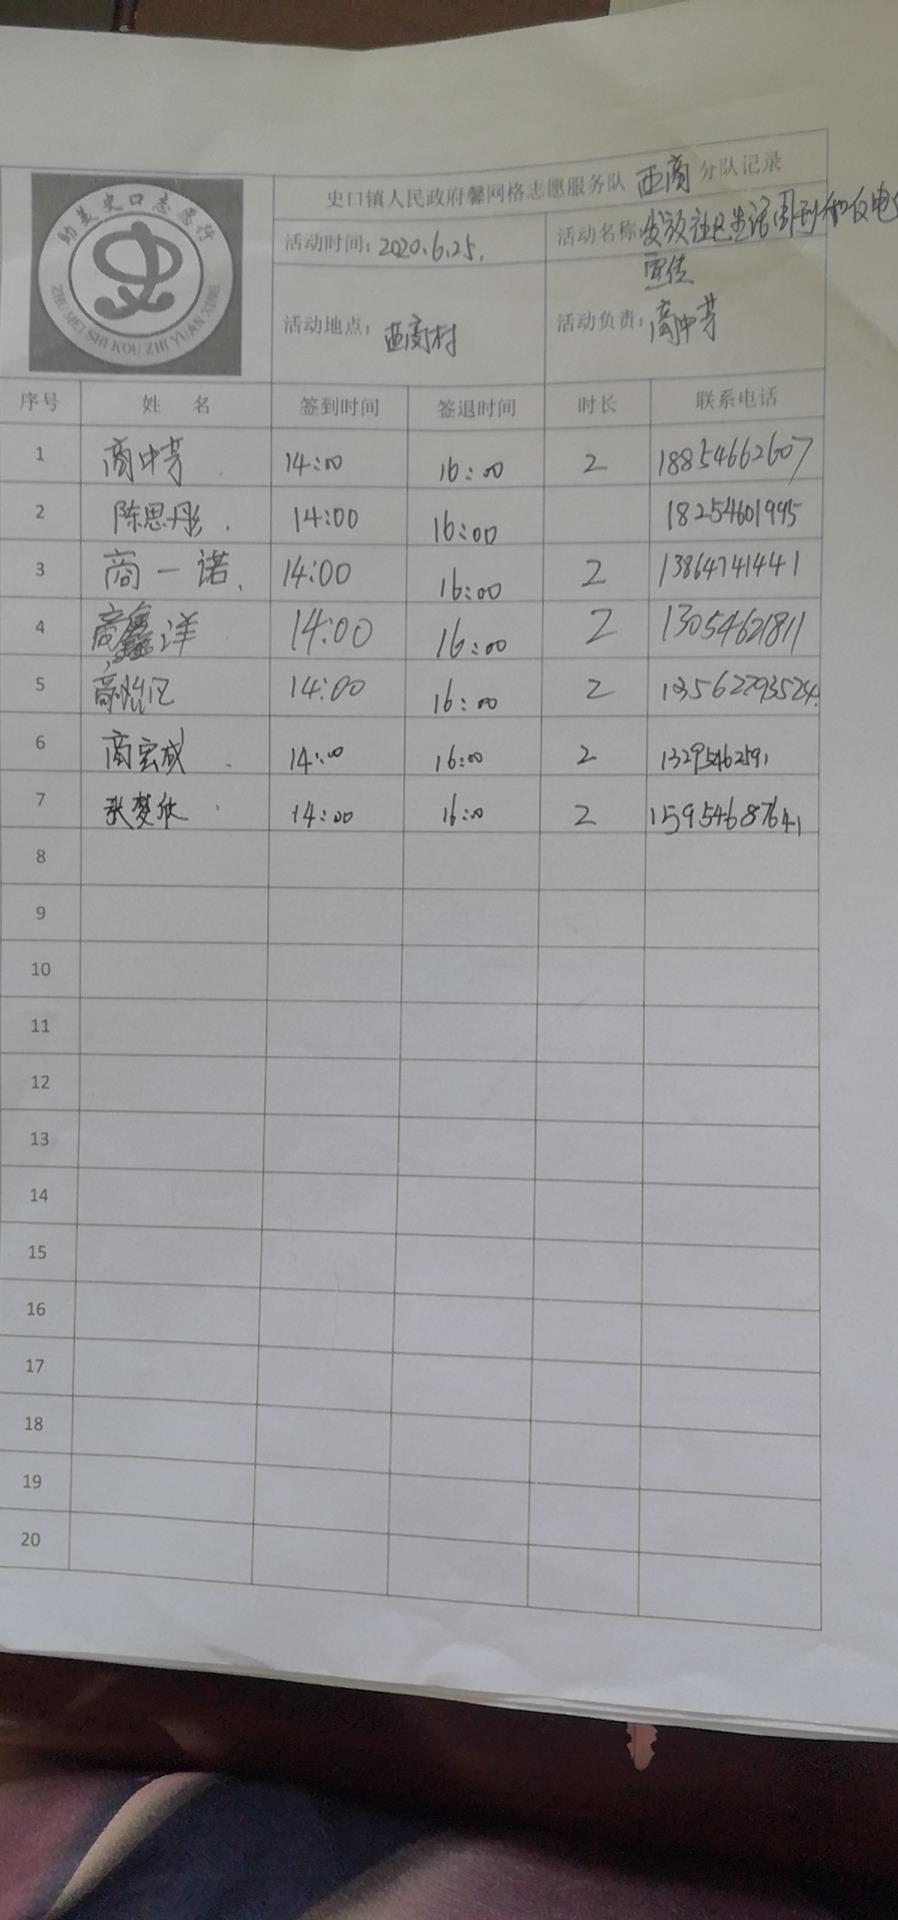 助美史口志愿行
ZHU MEI SHI KOU ZHI YUAN XING
史口镇人民政府馨网格志愿服务队 西商 分队记录
活动时间：2020.6.25.
活动名称：发放社区生活周刊和反电
宣传
活动地点：西商村
活动负责：商中芳
序号 姓 名 签到时间 签退时间 时长 联系电话
1 商中芳 14:00 16:00 2 18854662607
2 陈思彤. 14:00 16:00 18254601995
3 商一诺. 14:00 16:00 2 13864741441
4 商鑫洋 14:00 16:00 2 13054621811
5 14:00 16:00 2
6 商宏成 14:00 16:00 2 13295462591
7 张梦欣 14:00 16:00 2 15954687641
8
9
10
11
12
13
14
15
16
17
18
19
20